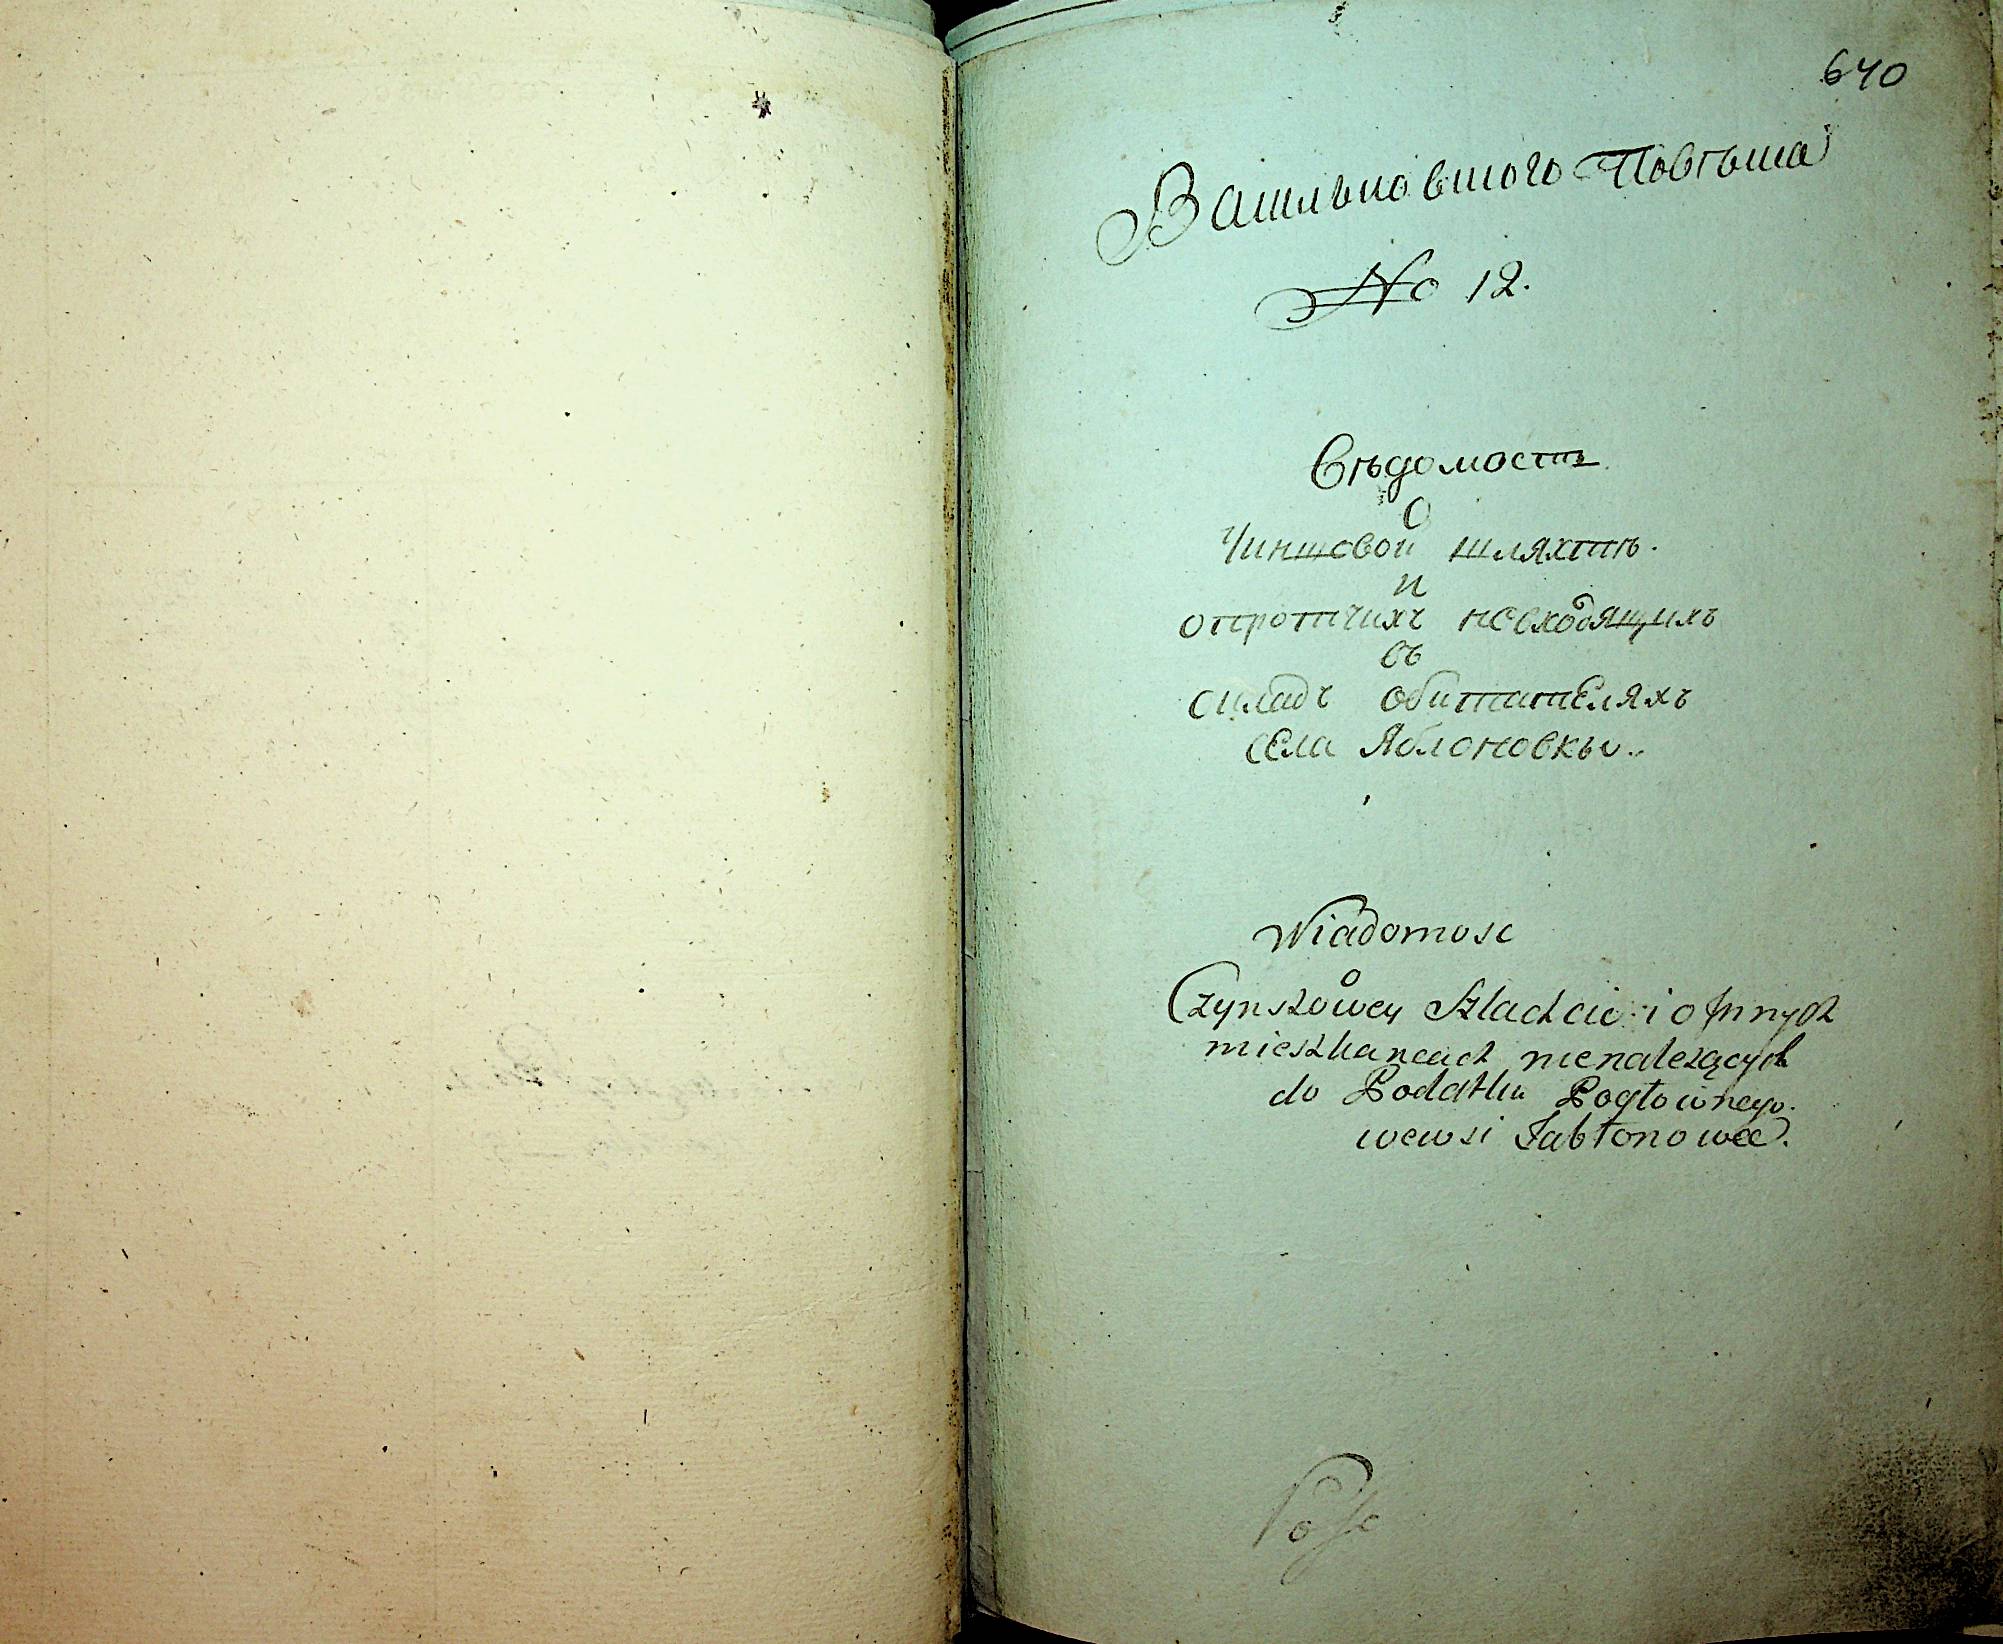 640
Васильковского Повѣта
No 12.
Вѣдомость
О
Чиншовой шляхтѣ.
и
опротчихъ невходящихъ
въ
окладъ обитателяхъ
села Яблоновки.
Wiadomosc
o
Czynszowey Szlachcie i o Innych
mieszkancach nienależących
do Podatku Pogłownego.
wewsi Jabłonowce.